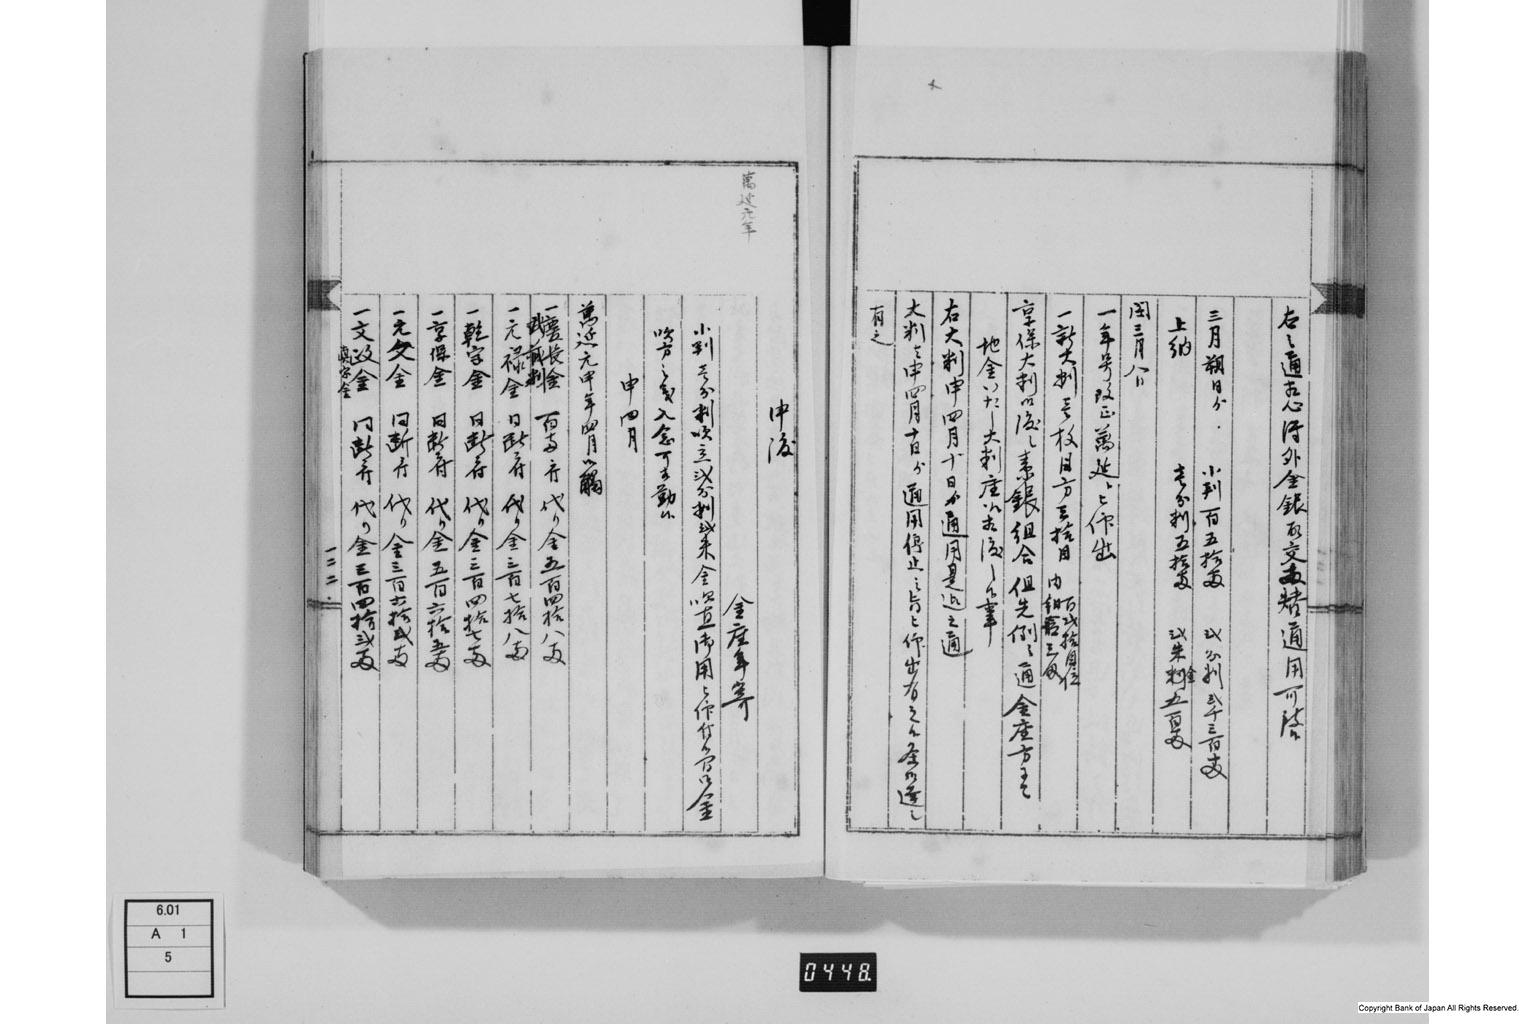 右之通相心得外金銀取交無差支通用可致候
三月朔日ゟ 小判百五拾両 弐分判弐千三百両
上納 壱分判五拾両 弐朱金判五百両
閏三月八日
一年号改正萬延と被仰出
一新大判壱枚目方三拾目 内
享保大判以後之素銀組合位先例之通金座方ニ而
地金いたし大判座江相渡し候事
右大判申四月十日ゟ通用是迄之通
大判者申四月十日ゟ通用停止之旨被仰出有之候条御達し
有之
萬延元年
申渡
金座年寄
小判壱分判吹立弐分判弐朱金吹直御用被仰付候間以金
吹方之義入念可相勤候
申四月
萬延元申年四月御触
一慶長金 百両ニ付 代り金五百四拾八両
武蔵判
一元禄金 同断ニ付 代り金三百七拾八両
一乾字金 同断ニ付 代り金三百四拾七両
一享保金 同断ニ付 代り金五百六拾五両
一元文金 同断ニ付 代り金三百六拾弐両
一文政金 同断ニ付 代り金三百四拾弐両
真字金
一二二
6.01
A 1
5
0448.
Copyright Bank of Japan All Rights Reserved.